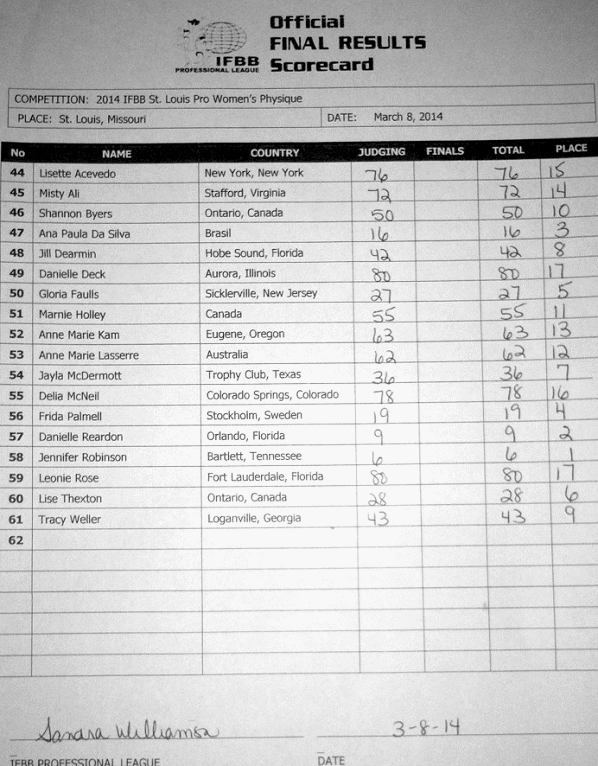 Official
FINAL RESULTS
IFBB
PROFESSIONAL LEAGUE
Scorecard
COMPETITION: 2014 IFBB St. Louis Pro Women's Physique
PLACE: St. Louis, Missouri DATE: March 8, 2014
No NAME COUNTRY JUDGING FINALS TOTAL PLACE
44 Lisette Acevedo New York, New York 76 76 15
45 Misty Ali Stafford, Virginia 72 72 14
46 Shannon Byers Ontario, Canada 50 50 10
47 Ana Paula Da Silva Brasil 16 16 3
48 Jill Dearmin Hobe Sound, Florida 42 42 8
49 Danielle Deck Aurora, Illinois 80 80 17
50 Gloria Faulls Sicklerville, New Jersey 27 27 5
51 Marnie Holley Canada 55 55 11
52 Anne Marie Kam Eugene, Oregon 63 63 13
53 Anne Marie Lasserre Australia 62 62 12
54 Jayla McDermott Trophy Club, Texas 36 36 7
55 Delia McNeil Colorado Springs, Colorado 78 78 16
56 Frida Palmell Stockholm, Sweden 19 19 4
57 Danielle Reardon Orlando, Florida 9 9 2
58 Jennifer Robinson Bartlett, Tennessee 6 6 1
59 Leonie Rose Fort Lauderdale, Florida 80 80 17
60 Lise Thexton Ontario, Canada 28 28 6
61 Tracy Weller Loganville, Georgia 43 43 9
62
Sandra Williamson 3-8-14
IFBB PROFESSIONAL LEAGUE DATE